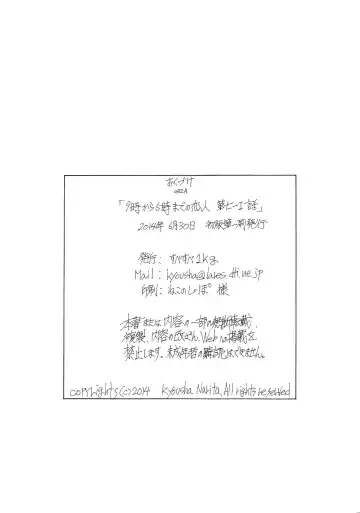 おくづけ
「9時から5時までの恋人 第七-1話」
2014年 6月30日 初版第一刷発行
発行: すいすい1kg
Mail: kyousha@
印刷: ねこのしっぽ 様
本書または内容の一部の無断転載、
複製、内容の改ざん、Webへの掲載を
禁止します。未成年者の購読はできません。
copyrights(c)2014 Kyousha Narita, All rights reserved